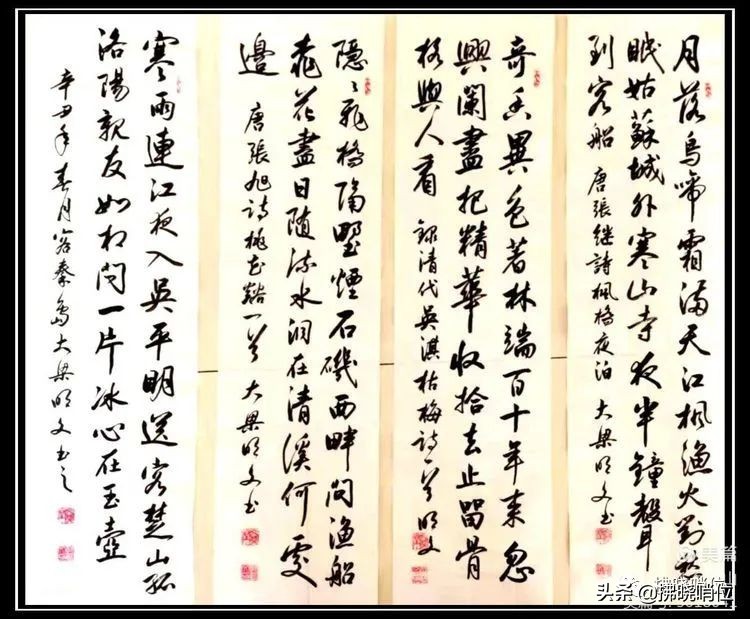 月落烏啼霜滿天江楓漁火對愁
眠姑蘇城外寒山寺夜半鐘聲
到客船 唐張继詩楓橋夜泊 大梁明文书
奇香異色著林端百十年来忽
興闌盡把精華收拾去止留骨
格與人看 録清代吴淇枯梅詩一首明文
隐〻飛橋隔野煙石磯西畔問漁船
桃花盡日随流水洞在清溪何處
邊 唐張旭诗桃花谿一首 大梁明文书
寒雨連江夜入吴平明送客楚山孤
洛陽親友如相问一片冰心在玉壺
辛丑年春月客秦島大梁明文书之
美篇
头条@拂晓哨位